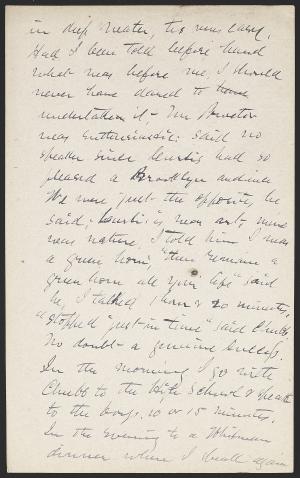 in deep water, 'tis very easy.
Had I been told before hand
what was before me, I should
never have dared to have
undertaken it. -
was enthusiastic; said no
speaker since Curtis had so
pleased a Brooklyn audience
We were just the opposite, he
said; Curtis's was art, mine
was nature, I told him I was
a green horn, "then remain a
green horn all your life" said
he, I talked 1 hour & 20 minutes,
& stopped "just in time" said Chubb
No doubt a genuine success.
In the morning I go with
Chubb to the High School & speak
to the boys, 10 or 15 minutes.
In the evening to a Whitman
dinner where I speak again